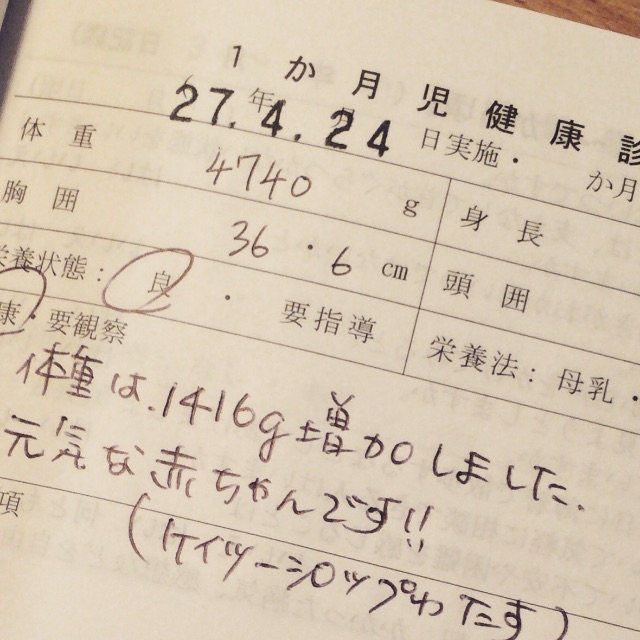 1か月児健康診
27年4.24日実施・ か月
体重 4740 g 身長
胸囲 36・6 cm 頭囲
栄養状態：良・要指導 栄養法：母乳・
康・要観察
体重は、1416g増加しました。
元気な赤ちゃんです!!
項
(ケイツーシロップわたす)